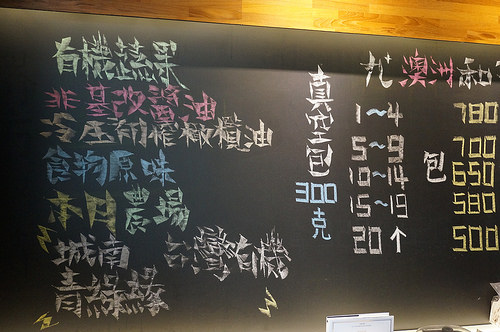 有機蔬果
非基改醬油
冷压初榨橄欖油
食物原味
木日農場
城南 台灣有機
青綠緣
真空包
300
克
澳洲和
1~4 780
5~9 700
包
10~14 650
15~19 580
20↑ 500